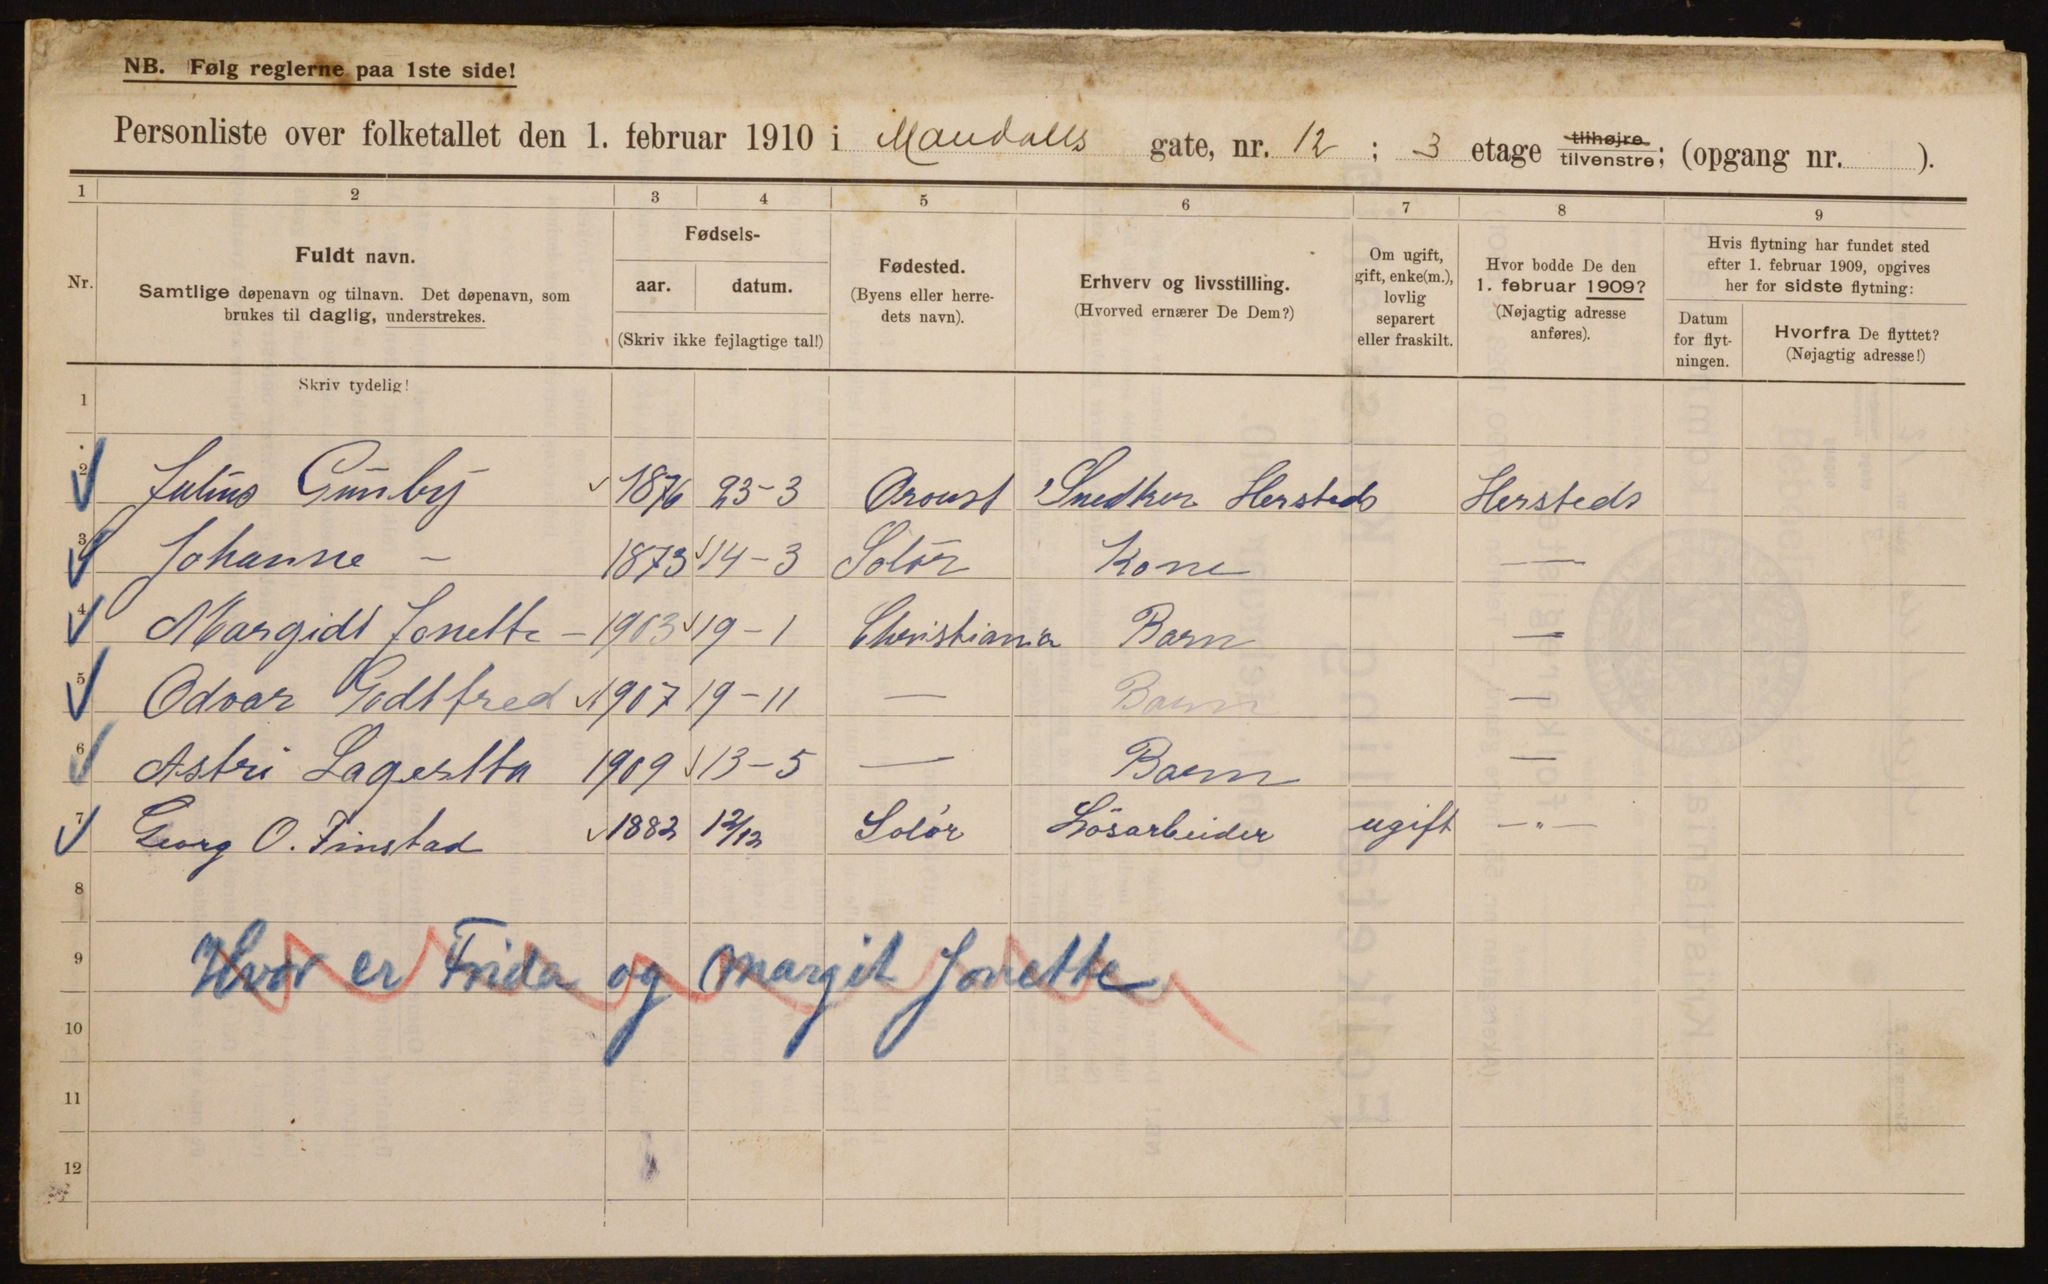 NB. Følg reglerne paa 1ste side!
Personliste over folketallet den 1. februar 1910 i Mandalls gate, nr. 12 ; 3 etage tilhøjre tilvenstre; (opgang nr. ).
1 2 3 4 5 6 7 8 9
Nr.
Fuldt navn.
Samtlige døpenavn og tilnavn. Det døpenavn, som
brukes til daglig, understrekes.
Fødsels-
aar. datum.
(Skriv ikke fejlagtige tal!)
Fødested.
(Byens eller herre-
dets navn).
Erhverv og livsstilling.
(Hvorved ernærer De Dem?)
Om ugift,
gift, enke(m.),
lovlig
separert
eller fraskilt.
Hvor bodde De den
1. februar 1909?
(Nøjagtig adresse
anføres).
Hvis flytning har fundet sted
efter 1. februar 1909, opgives
her for sidste flytning:
Datum
for flyt-
ningen.
Hvorfra De flyttet?
(Nøjagtig adresse!)
Skriv tydelig!
1
2 Julius Gunby 1876 23-3 Snedker Hersteds Hersteds
3 Johanne - 1873 14-3 Solør Kone —
4 Margidt Jonette - 1903 19-1 Christiania Barn —
5 Odvar Godtfred 1907 19-11 — Barn —
6 Astri Lagertta 1909 13-5 — Barn —
7 Georg O. Finstad 1882 12/12 Solør Løsarbeider ugift —"—
8
9 Hvor er Frida og Margit Jonette
10
11
12